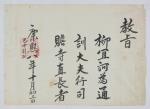 教旨
柳宜河爲通
訓大夫行司
贍寺直長者
康熙
年十月初三日